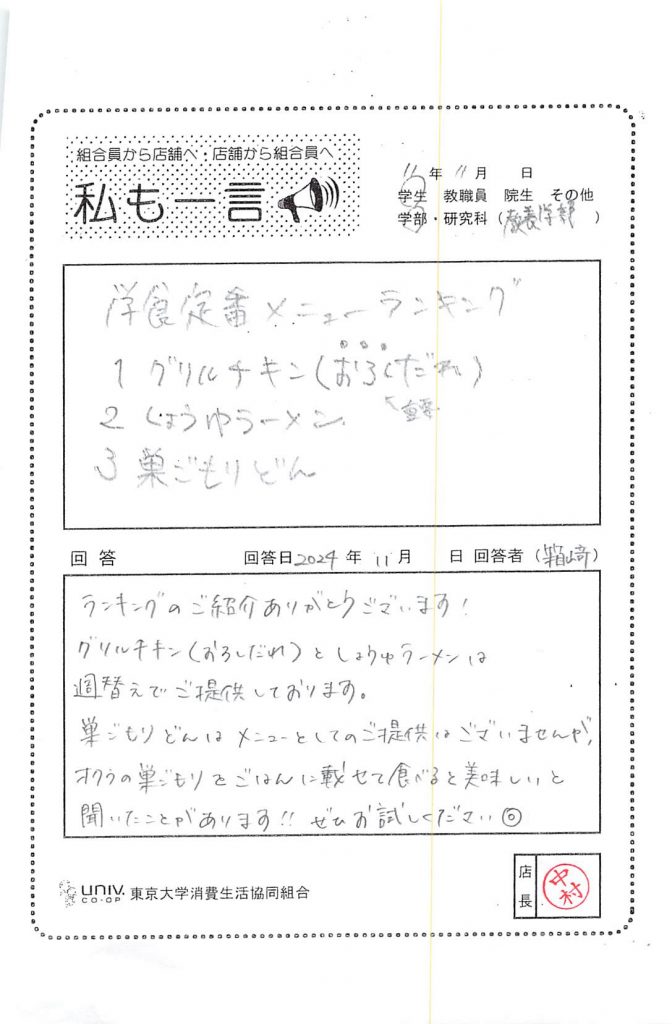 組合員から店舗へ・店舗から組合員へ
私も一言
年 11月 日
学生 教職員 院生 その他
学部・研究科（教養学部）
洋食定番メニューランキング
1 グリルチキン(おろしだれ)
重要
2 しょうゆラーメン
3 巣ごもりどん
回答 回答日2024年 11月 日 回答者（箱崎）
ランキングのご紹介ありがとうございます！
グリルチキン(おろしだれ)としょうゆラーメンは
週替えでご提供しております。
巣ごもりどんはメニューとしてのご提供はございませんが、
オクラの巣ごもりをごはんに載せて食べると美味しいと
聞いたことがあります!! ぜひお試しください◎
UNIV. CO-OP 東京大学消費生活協同組合
店長 中村